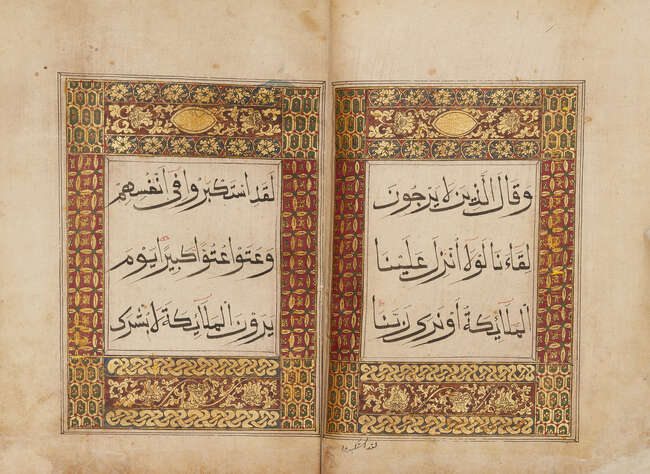 وَقَالَ الَّذِينَ لَا يَرْجُونَ
لِقَاءَنَا لَوْلَا أُنْزِلَ عَلَيْنَا
الْمَلَائِكَةُ أَوْ نَرَى رَبَّنَا
لقد استكبروا
لَقَدِ اسْتَكْبَرُوا فِي أَنْفُسِهِمْ
وَعَتَوْا عُتُوًّا كَبِيرًا يَوْمَ
يَرَوْنَ الْمَلَائِكَةَ لَا بُشْرَى